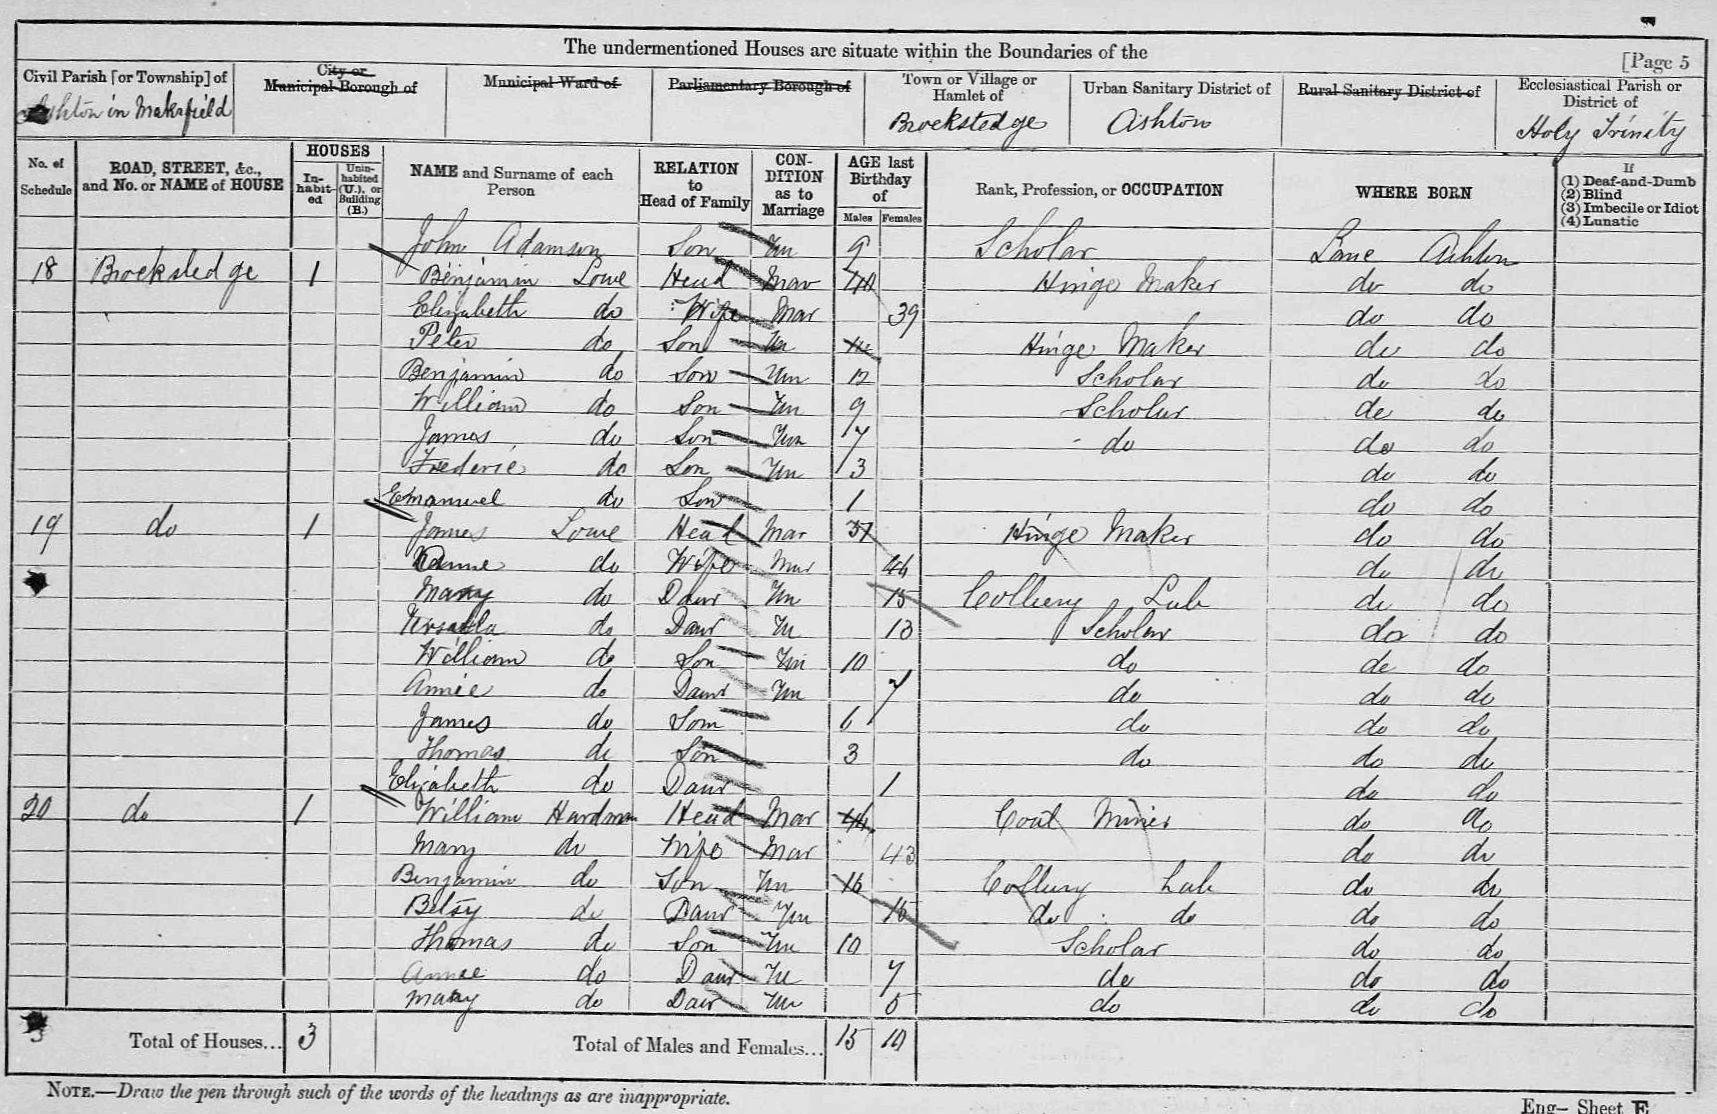 The undermentioned Houses are situate within the Boundaries of the
[Page 5
Civil Parish [or Township] of
Ashton in Makerfield
City or Municipal Borough of
Municipal Ward of
Parliamentary Borough of
Town or Village or Hamlet of
Brockstedge
Urban Sanitary District of
Ashton
Rural Sanitary District of
Ecclesiastical Parish or District of
Holy Trinity
No. of Schedule
ROAD, STREET, &c., and No. or NAME of HOUSE
HOUSES
In-habit-ed
Unin-habited (U.), or Building (B.)
NAME and Surname of each Person
RELATION to Head of Family
CON-DITION as to Marriage
AGE last Birthday of
Males Females
Rank, Profession, or OCCUPATION
WHERE BORN
If
(1) Deaf-and-Dumb
(2) Blind
(3) Imbecile or Idiot
(4) Lunatic
John Adamson Son Un 9 Scholar Lanc Ashton
18 Brocksledge 1 Benjamin Lowe Head Mar Hinge Maker do do
Elizabeth do Wife Mar 39 do do
Peter do Son Un Hinge Maker do do
Benjamin do Son Un 12 Scholar do do
William do Son Un 9 Scholar do do
James do Son Un 7 do do do
Frederic do Son Un 3 do do
Emanuel do Son 1 do do
19 do 1 James Lowe Head Mar 37 Hinge Maker do do
do Wife Mar do do
Mary do Daur Un 15 Colliery Lab do do
do Daur Un 13 Scholar do do
William do Son Un 10 do do do
Annie do Daur Un 7 do do do
James do Son 6 do do do
Thomas do Son 3 do do do
Elizabeth do Daur 1 do do
20 do 1 William Hardman Head Mar 44 Coal Miner do do
Mary do Wife Mar 43 do do
Benjamin do Son Un 16 Colliery Lab do do
Betsy do Daur Un 15 do do do do
Thomas do Son Un 10 Scholar do do
Annie do Daur Un 7 do do do
Mary do Daur Un 5 do do do
3 Total of Houses... 3 Total of Males and Females... 15 10
NOTE.—Draw the pen through such of the words of the headings as are inappropriate.
Eng– Sheet E